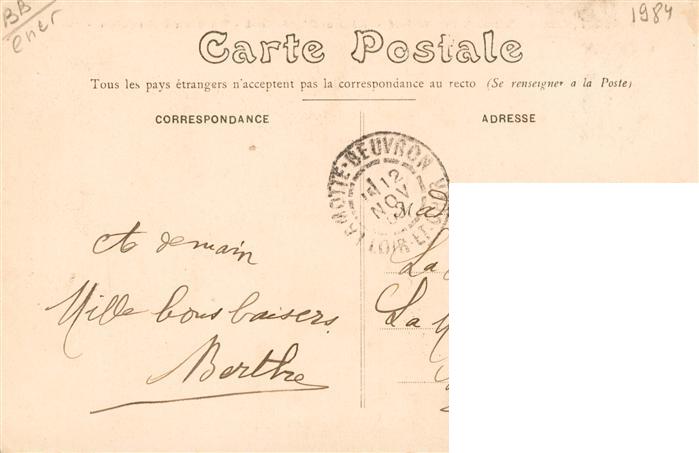 BB
ener
1984
Carte Postale
Tous les pays étrangers n'acceptent pas la correspondance au recto (Se renseigner a la Poste)
CORRESPONDANCE
ADRESSE
LAMOTTE-BEUVRON
12
NOV
LOIR-ET-CHER
A demain
Mille bons baisers
Berthe
Mad
La
La